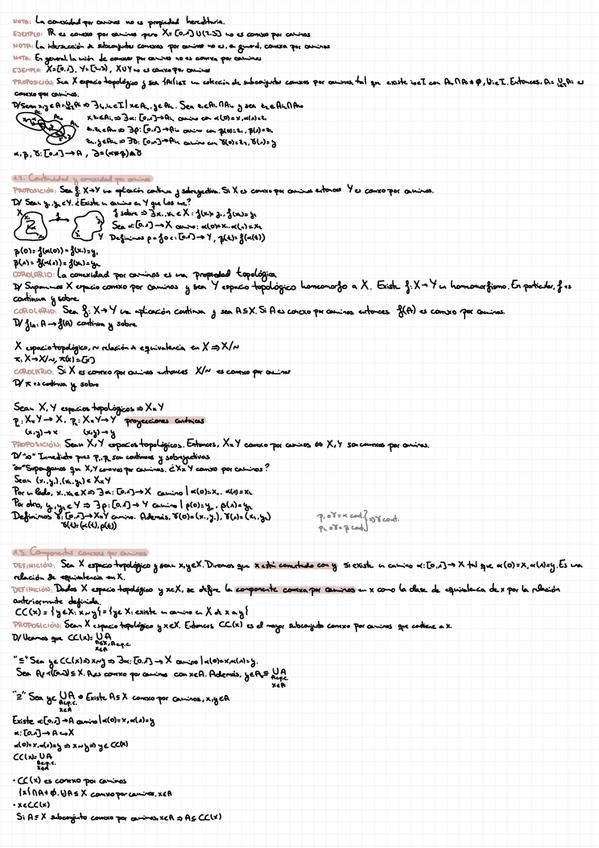 NOTA: La conexidad por caminos no es propiedad hereditaria.
EJEMPLO: ℝ es conexo por caminos pero X=[0,1]∪(2,3) no es conexo por caminos
NOTA: La intersección de subconjuntos conexos por caminos no es, en general, conexa por caminos
NOTA: En general la unión de conexos por caminos no es conexa por caminos
EJEMPLO: X=[0,1], Y= X∪Y no es conexo por caminos
PROPOSICIÓN: Sea X espacio topológico y sea {Ai}i∈I un colección de subconjuntos conexos por caminos, tal que existe i₀∈I con Ai₀∩Ai≠∅, ∀i∈I. Entonces, A=∪Ai es
conexo por caminos.
D/ Sean x,y∈A=∪Ai ⇒ ∃i₁,i₂∈I | x∈Ai₁, y∈Ai₂. Sea z₁∈Ai₁∩Ai₀ y sea z₂∈Ai₂∩Ai₀
x,z₁∈Ai₁ ⇒ ∃α: [0,1]→Ai₁ camino con α(0)=x, α(1)=z₁
z₁,z₂∈Ai₀ ⇒ ∃β: [0,1]→Ai₀ camino con β(0)=z₁, β(1)=z₂
z₂,y∈Ai₂ ⇒ ∃γ: [0,1]→Ai₂ camino con γ(0)=z₂, γ(1)=y
α,β,γ: [0,1]→A, ∂=(α*β)*γ
Continuidad y conexidad por caminos
PROPOSICIÓN: Sea f: X→Y una aplicación continua y sobreyectiva. Si X es conexo por caminos entonces Y es conexo por caminos.
D/ Sean y₁,y₂∈Y. ¿Existe un camino en Y que los une?
f sobre ⇒ ∃x₁,x₂∈X : f(x₁)=y₁, f(x₂)=y₂
Sea α:[0,1]→X camino: α(0)=x₁, α(1)=x₂
Definimos β=f∘α: [0,1]→Y, β(t)=f(α(t))
β(0)=f(α(0))=f(x₁)=y₁
β(1)=f(α(1))=f(x₂)=y₂
COROLARIO: La conexidad por caminos es una propiedad topológica
D/ Supongamos X espacio conexo por caminos y sea Y espacio topológico homeomorfo a X. Existe f: X→Y un homeomorfismo. En particular, f es
continua y sobre.
COROLARIO: Sea f: X→Y una aplicación continua y sea A⊆X. Si A es conexo por caminos entonces f(A) es conexo por caminos.
D/ f|A: A→f(A) continua y sobre
X espacio topológico, ~ relación de equivalencia en X ⇒ X/~
π: X→X/~, π(x)=[x]
COROLARIO: Si X es conexo por caminos entonces X/~ es conexo por caminos
D/ π es continua y sobre
Sean X,Y espacios topológicos ⇒ X×Y
p₁: X×Y→X, p₂: X×Y→Y proyecciones canónicas
(x,y)→x (x,y)→y
PROPOSICIÓN: Sean X,Y espacios topológicos. Entonces, X×Y conexo por caminos ⇔ X,Y son conexos por caminos.
D/ "⇒" Inmediato pues p₁,p₂ son continuas y sobreyectivas
"⇐" Supongamos que X,Y conexos por caminos. ¿X×Y conexo por caminos?
Sean (x₁,y₁),(x₂,y₂)∈X×Y
Por un lado, x₁,x₂∈X ⇒ ∃α: [0,1]→X camino | α(0)=x₁, α(1)=x₂
Por otro, y₁,y₂∈Y ⇒ ∃β: [0,1]→Y camino | β(0)=y₁, β(1)=y₂
Definimos γ: [0,1]→X×Y camino. Además, γ(0)=(x₁,y₁), γ(1)=(x₂,y₂)
γ(t)=(α(t),β(t))
p₁∘γ=α cont.
p₂∘γ=β cont. } ⇒ γ cont.
Componentes conexas por caminos
DEFINICIÓN: Sea X espacio topológico y sean x,y∈X. Diremos que x está conectado con y si existe un camino α: [0,1]→X tal que α(0)=x, α(1)=y. Es una
relación de equivalencia en X.
DEFINICIÓN: Dados X espacio topológico y x∈X, se define la componente conexa por caminos en x como la clase de equivalencia de x por la relación
anteriormente definida.
CC(x)={y∈X: x~y}={y∈X: existe un camino en X de x a y}
PROPOSICIÓN: Sean X espacio topológico y x∈X. Entonces CC(x) es el mayor subconjunto conexo por caminos que contiene a x.
D/ Veamos que CC(x)=∪A
A⊆X, A c.p.c.
x∈A
"⊆" Sea y∈CC(x) ⇒ x~y ⇒ ∃α: [0,1]→X camino | α(0)=x, α(1)=y.
Sea A₀=α([0,1])⊆X. A₀ es conexo por caminos con x∈A. Además, y∈A₀⊆∪A
A c.p.c.
x∈A
"⊇" Sea y∈∪A ⇒ Existe A⊆X conexo por caminos, x,y∈A
A c.p.c.
x∈A
Existe α:[0,1]→A camino | α(0)=x, α(1)=y
α: [0,1]→A↪X
α(0)=x, α(1)=y ⇒ x~y ⇒ y∈CC(x)
CC(x)=∪A
A c.p.c.
x∈A
· CC(x) es conexo por caminos
{x}∩A≠∅. ∪A⊆X conexo por caminos, x∈A
· x∈CC(x)
Si A⊆X subconjunto conexo por caminos, x∈A ⇒ A⊆CC(x)